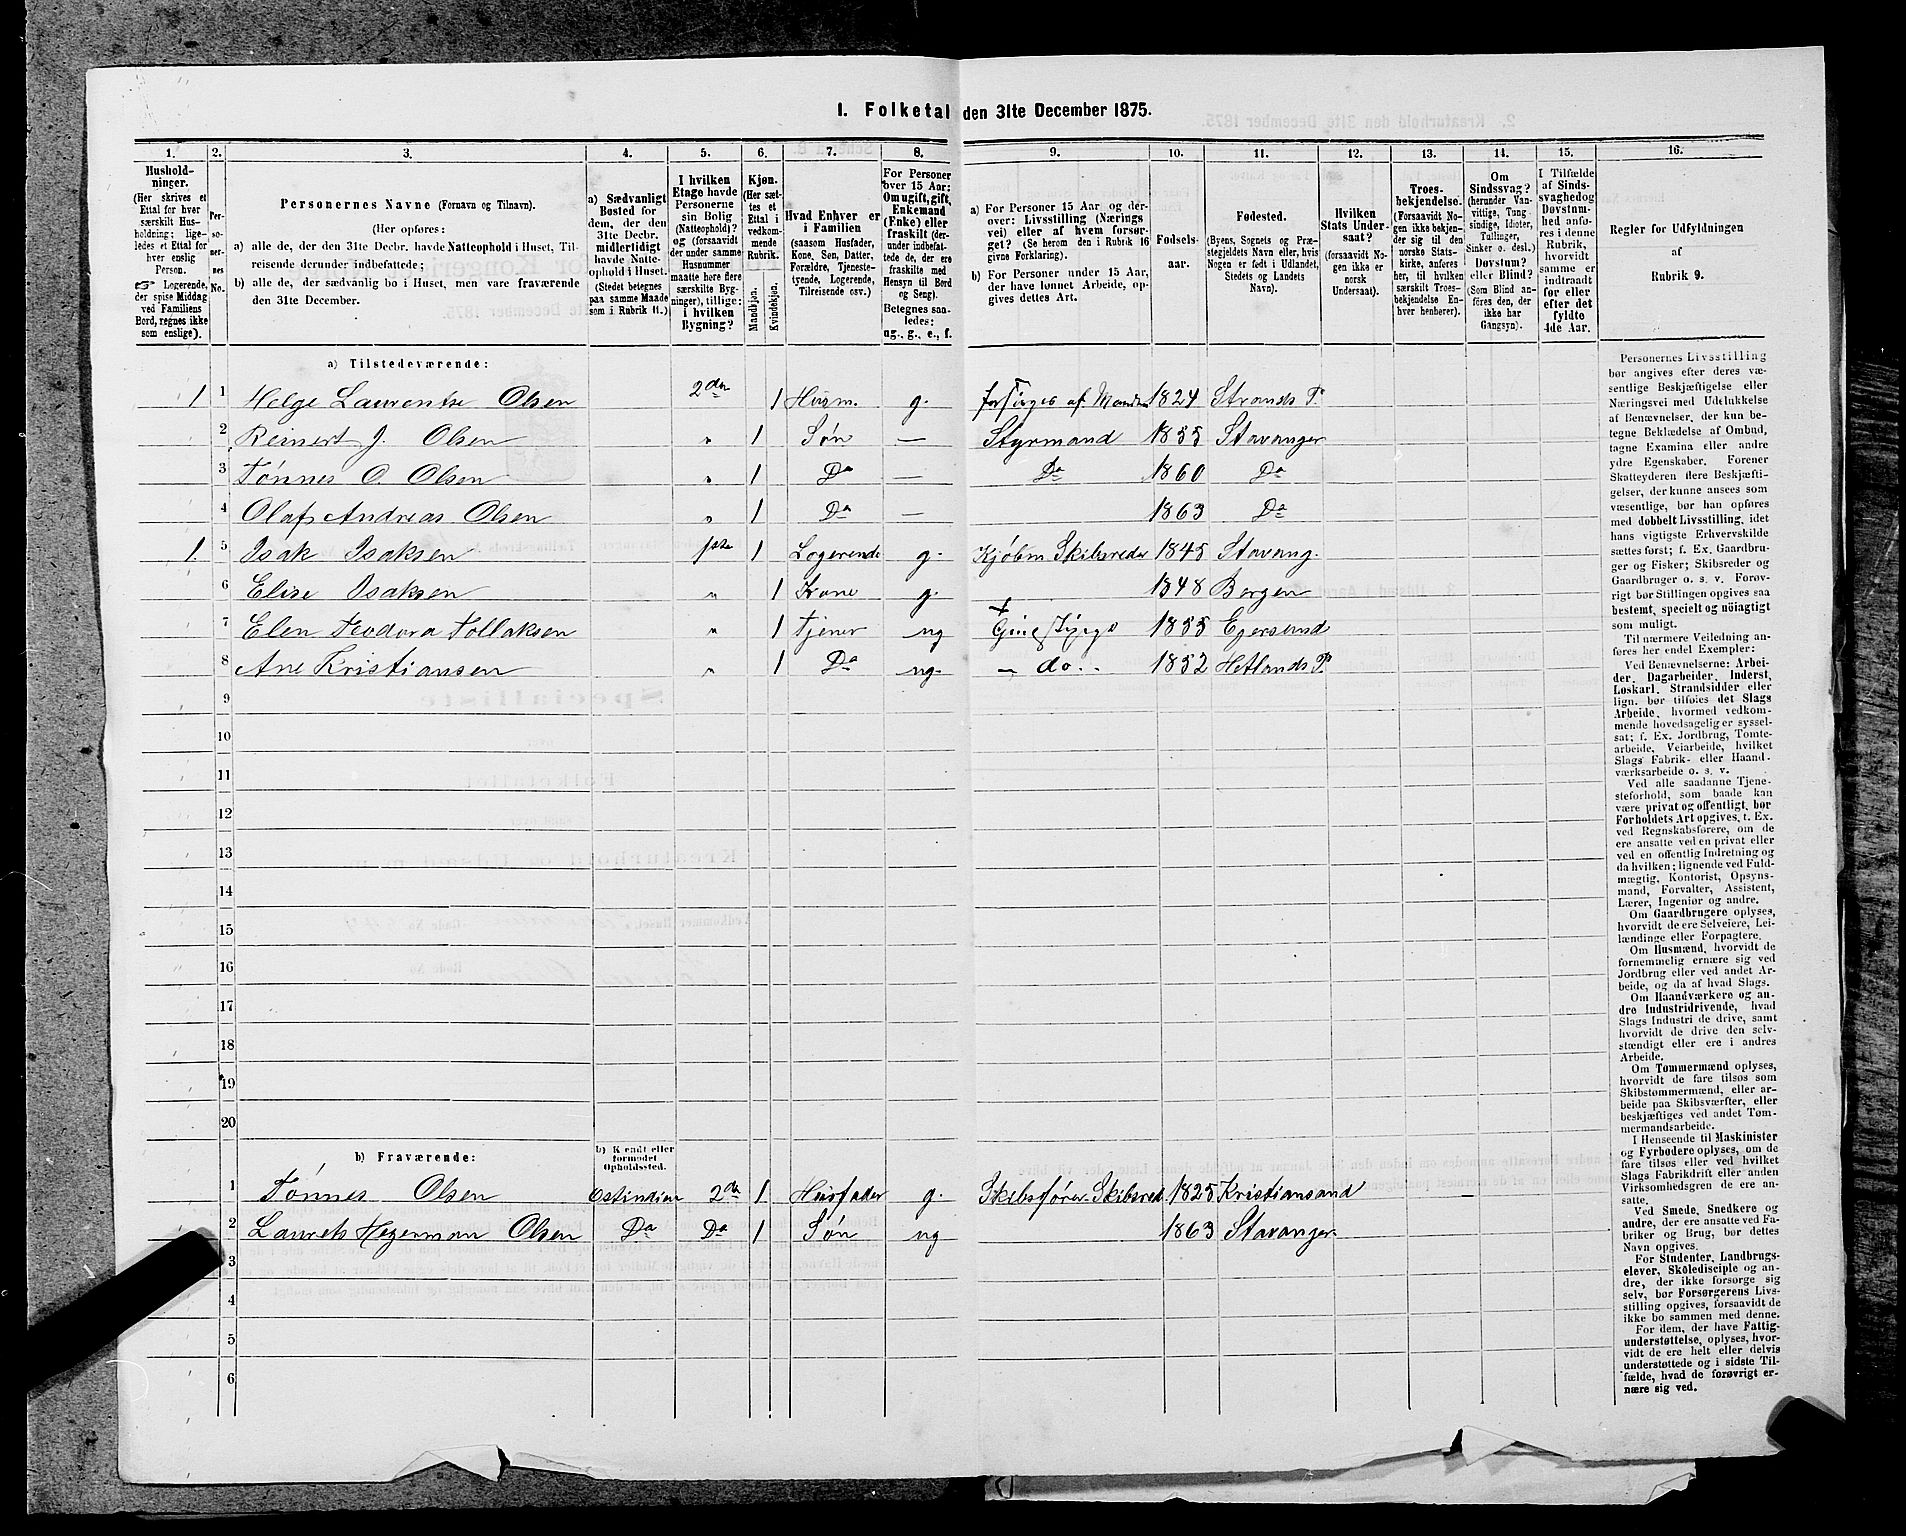 1. Folketal den 31te December 1875.
1. 2. 3. 4. 5. 6. 7. 8. 9. 10. 11. 12. 13. 14. 15. 16.
Hushold-
ninger.
(Her skrives et
Ettal for hver
særskilt Hus-
holdning; lige-
ledes et Ettal for
hver enslig
Person.
☞ Logerende,
der spise Middag
ved Familiens
Bord, regnes ikke
som enslige).
Per-
so-
ner-
nes
No.
Personernes Navne (Fornavn og Tilnavn).
(Her opføres:
a) alle de, der den 31te Decbr. havde Natteophold i Huset, Til-
reisende derunder indbefattede;
b) alle de, der sædvanlig bo i Huset, men vare fraværende
den 31te December.
a) Sædvanligt
Bosted for
dem, der den
31te Decbr.
midlertidigt
havde Natte-
ophold i Huset.
(Stedet betegnes
paa samme Maade
som i Rubrik 11.)
I hvilken
Etage havde
Personerne
sin Bolig
(Natteophold)?
og (forsaavidt
der under samme
Husnummer
maatte høre flere
særskilte Byg-
ninger), tillige:
i hvilken
Bygning?
Kjøn.
(Her sæt-
tes et
Ettal i
vedkom-
mende
Rubrik.
Mandkjøn.
Kvindekjøn.
Hvad Enhver er
i Familien
(saasom Husfader,
Kone, Søn, Datter,
Forældre, Tjeneste-
tyende, Logerende,
Tilreisende osv.)
For Personer
over 15 Aar:
Om ugift, gift,
Enkemand
(Enke) eller
fraskilt (der-
under indbefat-
tede de, der ere
fraskilte med
Hensyn til Bord
og Seng).
Betegnes saa-
ledes:
ug., g., e., f.
a) For Personer 15 Aar og der-
over: Livsstilling (Nærings
vei) eller af hvem forsør-
get? (Se herom den i Rubrik 16
givne Forklaring).
b) For Personer under 15 Aar,
der have lønnet Arbeide, op-
gives dettes Art.
Fødsels-
aar.
Fødested.
(Byens, Sognets og Præ-
stegjeldets Navn eller, hvis
Nogen er født i Udlandet,
Stedets og Landets
Navn).
Hvilken
Stats Under-
saat?
(forsaavidt No-
gen ikke er
norsk
Undersaat).
Troes-
bekjendelse.
(Forsaavidt No-
gen ikke bekjen-
der sig til den
norske Stats-
kirke, anføres
her, til hvilken
særskilt Troes-
bekjendelse En-
hver henhører).
Om
Sindssvag?
(herunder Van-
vittige, Tung
sindige, Idioter,
Tullinger,
Sinker o. desl.)
Døvstum?
eller Blind?
(Som Blind an-
føres den, der
ikke har
Gangsyn).
I Tilfælde
af Sinds-
svaghed og
Døvstum-
hed anfø-
res i denne
Rubrik,
hvorvidt
samme er
indtraadt
før eller
efter det
fyldte
4de Aar.
Regler for Udfyldningen
af
Rubrik 9.
a) Tilstedeværende:
1 1 Helge Laurentse Olsen 2den 1 Husm. g. forsørges af Manden 1824 Strands P.
2 Reinert J. Olsen " 1 Søn — Styrmand 1855 Stavanger
3 Tønnes O. Olsen " 1 Do — Do 1860 Do
4 Olaf Andreas Olsen " 1 Do — 1863 Do
1 5 Isak Isaksen 1ste 1 Logerende g. Kjøbm Skibsreder 1845 Stavang.
6 Elise Isaksen " 1 Kone g. 1848 Bergen
7 Elen Teodora Tollaksen " 1 Tjener ug 1855 Egersund
8 Ane Kristiansen " 1 Do ug. — do.. 1852 Hetlands P.
9
10
11
12
13
14
15
16
17
18
19
20
b) Fraværende:
b) Kjendt eller
formodet
Opholdssted.
1 Tønnes Olsen Ostindien 2den 1 Husfader g. Skibsfører. Skibsred. 1825 Kristiansand
2 Laurets Hegerman Olsen Do Do 1 Søn ug 1863 Stavanger.
3
4
5
6
Personernes Livsstilling
bør angives efter deres væ-
sentlige Beskjæftigelse eller
Næringsvei med Udelukkelse
af Benævnelser, der kun be-
tegne Beklædelse af Ombud,
tagne Examina eller andre
ydre Egenskaber. Forener
Skatteyderen flere Beskjæfti-
gelser, der kunne ansees som
væsentlige, bør han opføres
med dobbelt Livsstilling, idet
hans vigtigste Erhvervskilde
sættes først; f. Ex. Gaardbru-
ger og Fisker; Skibsreder og
Gaardbruger o. s. v. Forøv-
rigt bør Stillingen opgives saa
bestemt, specielt og nøiagtigt
som muligt.
Til nærmere Veiledning an-
føres her endel Exempler:
Ved Benævnelserne: Arbei-
der, Dagarbeider, Inderst,
Løskarl, Strandsidder eller
lign. bør tilføies det Slags
Arbeide, hvormed vedkom-
mende hovedsagelig er syssel-
sat; f. Ex. Jordbrug, Tomte-
arbeide, Veiarbeide, hvilket
Slags Fabrik- eller Haand-
værksarbeide o. s. v.
Ved alle saadanne Tjene-
steforhold, som baade kan
være privat og offentligt, bør
Forholdets Art opgives, t. Ex.
ved Regnskabsførere, om de
ere ansatte ved en privat eller
ved en offentlig Indretning og
da hvilken; lignende ved Fuld-
mægtig, Kontorist, Opsyns-
mand, Forvalter, Assistent,
Lærer, Ingeniør og andre.
Om Gaardbrugere oplyses,
hvorvidt de ere Selveiere, Lei-
lændinge eller Forpagtere.
Om Husmænd, hvorvidt de
fornemmelig ernære sig ved
Jordbrug eller ved andet Ar-
beide, og da af hvad Slags.
Om Haandværkere og an-
dre Industridrivende, hvad
Slags Industri de drive, samt
hvorvidt de drive den selv-
stændigt eller ere i andres
Arbeide.
Om Tømmermænd oplyses,
hvorvidt de fare tilsøs som
Skibstømmermænd, eller ar-
beide paa Skibsværfter, eller
beskjæftiges ved andet Tøm-
mermandsarbeide.
I Henseende til Maskinister
og Fyrbødere oplyses, om de
fare tilsøs eller ved hvilket
Slags Fabrikdrift eller anden
Virksomhedsgren de ere an-
satte.
Ved Smede, Snedkere og
andre, der ere ansatte ved Fa-
briker og Brug, bør dettes
Navn opgives.
For Studenter, Landbrugs-
elever, Skoledisciple og an-
dre, der ikke forsørge sig
selv, bør Forsørgerens Livs-
stilling opgives, forsaavidt de
ikke bo sammen med denne.
For dem, der have Fattig-
understøttelse, oplyses, hvor-
vidt de ere helt eller delvis
understøttede og i sidste Til-
fælde, hvad de forøvrigt er-
nære sig ved.